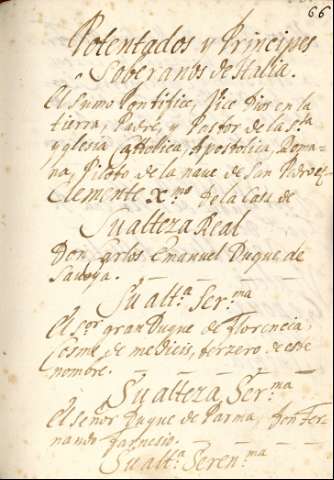 66
Potentados y Principes
Soberanos de Italia.
El Sumo Pontifice, Vice Dios en la
tierra, Padre, y Pastor de la S.ta
yglesia Catholica, Apostolica, Roma-
na, Piloto de la nave de San Pedro es
Clemente X.mo de la Casa de
Su alteza Real
Don Carlos Emanuel Duque de
Saboya.
Su alt.a Ser.ma
El s.or gran Duque de Florencia,
Cosme de medicis, terzero de este
nombre.
Su alteza Ser.ma
El señor Duque de Parma, Don Fer-
nando farnesio.
Su alt.a Seren.ma